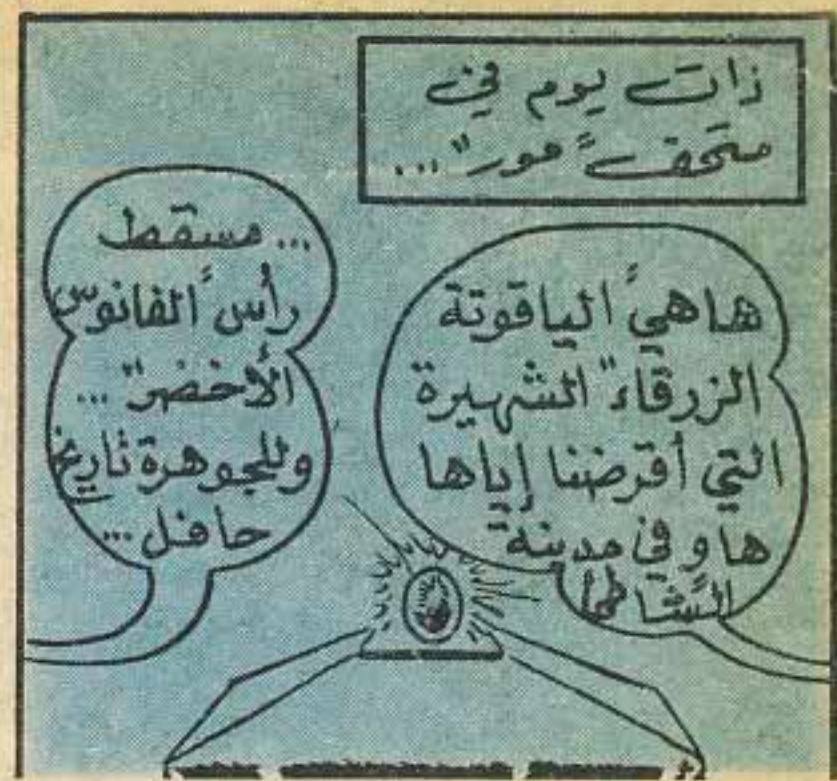 ذات يوم في
متحف "مور"...
ها هي "الياقوتة
الزرقاء" الشهيرة
التي أقرضنا إياها
هاو في مدينة
الشاطئ
... مسقط
رأس "الفانوس
الأخضر"...
وللجوهرة تاريخ
حافل...